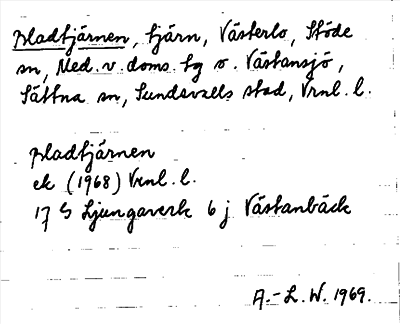 Bladtjärnen, tjärn, Västerlo, Stöde
sn, Med. v. doms. tg o. Västansjö,
Sättna sn, Sundsvalls stad, Vrnl. l.
Bladtjärnen
ek (1968) Vrnl. l.
17 G Ljungaverk 6 j Västanbäck
A.-L. W. 1969.